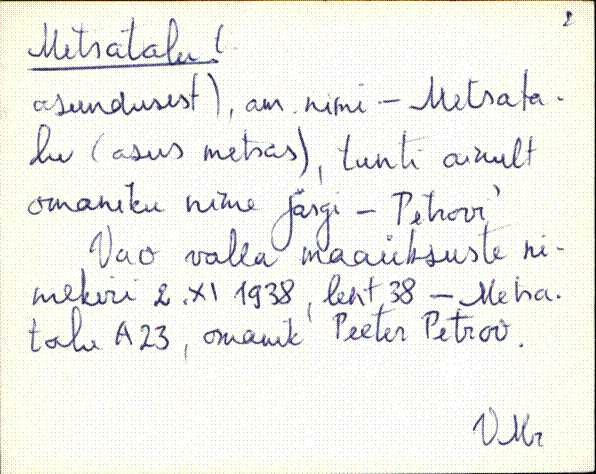 2
Metsatalu (
asundusest), am. nimi – Metsata-
lu (asus metsas), tunti ainult
omaniku nime järgi – Petrovi
Vao valla maaüksuste ni-
mekiri 2. XI 1938, leht 38 – Metsa-
talu A 23, omanik Peeter Petrov.
VMr